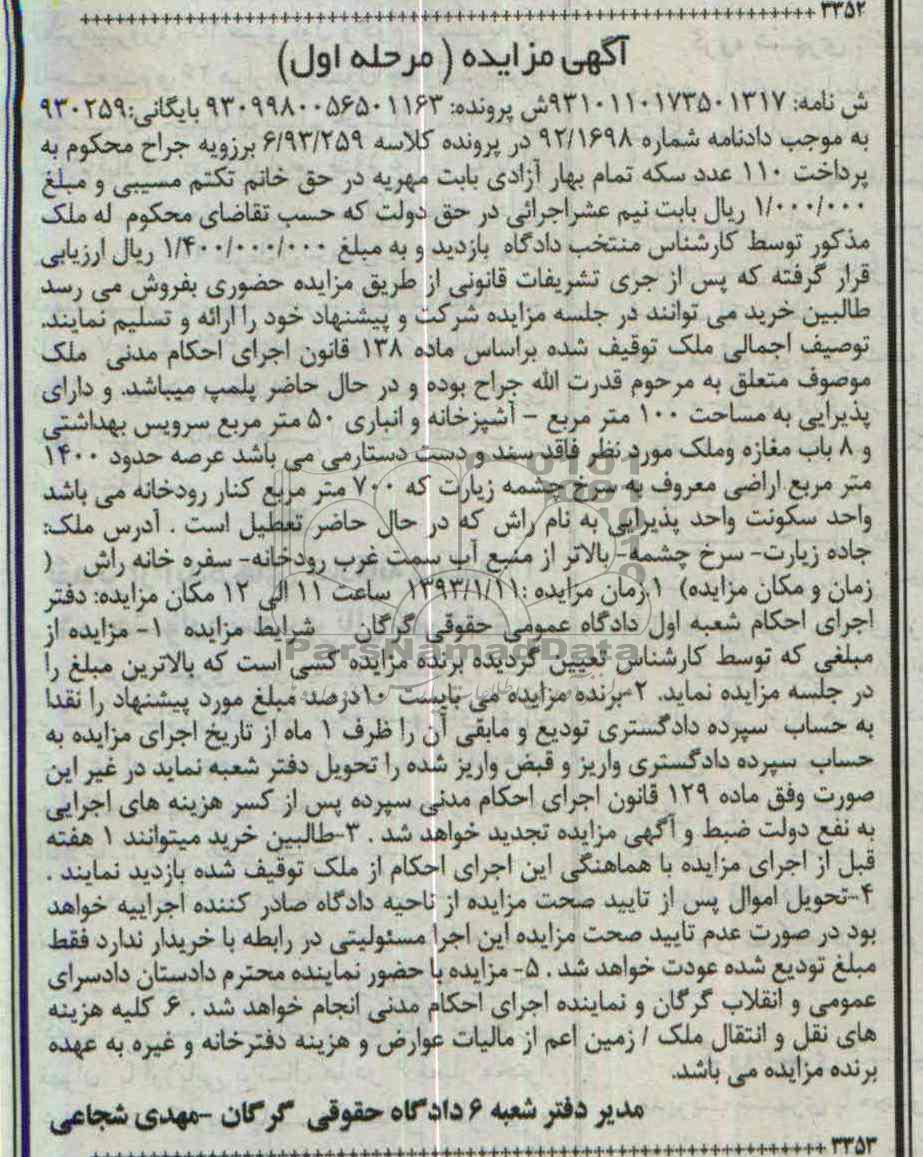 ۳۳۵۲
آگهی مزایده ( مرحله اول)
ش نامه: ۹۳۱۰۱۱۰۱۷۳۵۰۱۳۱۷ش پرونده: ۹۳۰۹۹۸۰۰۵۶۵۰۱۱۶۳ بایگانی:۹۳۰۲۵۹
به موجب دادنامه شماره ۹۲/۱۶۹۸ در پرونده کلاسه ۶/۹۳/۲۵۹ برزویه جراح محکوم به
پرداخت ۱۱۰ عدد سکه تمام بهار آزادی بابت مهریه در حق خانم تکتم مسیبی و مبلغ
۱/۰۰۰/۰۰۰ ریال بابت نیم عشراجرائی در حق دولت که حسب تقاضای محکوم له ملک
مذکور توسط کارشناس منتخب دادگاه بازدید و به مبلغ ۱/۴۰۰/۰۰۰/۰۰۰ ریال ارزیابی
قرار گرفته که پس از جری تشریفات قانونی از طریق مزایده حضوری بفروش می رسد
طالبین خرید می توانند در جلسه مزایده شرکت و پیشنهاد خود را ارائه و تسلیم نمایند.
توصیف اجمالی ملک توقیف شده براساس ماده ۱۳۸ قانون اجرای احکام مدنی ملک
موصوف متعلق به مرحوم قدرت الله جراح بوده و در حال حاضر پلمپ میباشد. و دارای
پذیرایی به مساحت ۱۰۰ متر مربع – آشپزخانه و انباری ۵۰ متر مربع سرویس بهداشتی
و ۸ باب مغازه وملک مورد نظر فاقد سند و دست دستارمی می باشد عرصه حدود ۱۴۰۰
متر مربع اراضی معروف به سرخ چشمه زیارت که ۷۰۰ متر مربع کنار رودخانه می باشد
واحد سکونت واحد پذیرایی به نام راش که در حال حاضر تعطیل است . آدرس ملک:
جاده زیارت- سرخ چشمه- بالاتر از منبع آب سمت غرب رودخانه- سفره خانه راش (
زمان و مکان مزایده) ۱.زمان مزایده :۱۳۹۳/۱/۱۱ ساعت ۱۱ الی ۱۲ مکان مزایده: دفتر
اجرای احکام شعبه اول دادگاه عمومی حقوقی گرگان شرایط مزایده ۱- مزایده از
مبلغی که توسط کارشناس تعیین گردیده برنده مزایده کسی است که بالاترین مبلغ را
در جلسه مزایده نماید. ۲-برنده مزایده می بایست ۱۰درصد مبلغ مورد پیشنهاد را نقدا
به حساب سپرده دادگستری تودیع و مابقی آن را ظرف ۱ ماه از تاریخ اجرای مزایده به
حساب سپرده دادگستری واریز و قبض واریز شده را تحویل دفتر شعبه نماید در غیر این
صورت وفق ماده ۱۲۹ قانون اجرای احکام مدنی سپرده پس از کسر هزینه های اجرایی
به نفع دولت ضبط و آگهی مزایده تجدید خواهد شد . ۳-طالبین خرید میتوانند ۱ هفته
قبل از اجرای مزایده با هماهنگی این اجرای احکام از ملک توقیف شده بازدید نمایند .
۴-تحویل اموال پس از تایید صحت مزایده از ناحیه دادگاه صادر کننده اجراییه خواهد
بود در صورت عدم تایید صحت مزایده این اجرا مسئولیتی در رابطه با خریدار ندارد فقط
مبلغ تودیع شده عودت خواهد شد . ۵- مزایده با حضور نماینده محترم دادستان دادسرای
عمومی و انقلاب گرگان و نماینده اجرای احکام مدنی انجام خواهد شد . ۶. کلیه هزینه
های نقل و انتقال ملک / زمین اعم از مالیات عوارض و هزینه دفترخانه و غیره به عهده
برنده مزایده می باشد.
مدیر دفتر شعبه ۶ دادگاه حقوقی گرگان -مهدی شجاعی
۳۳۵۳
ParsNamadData